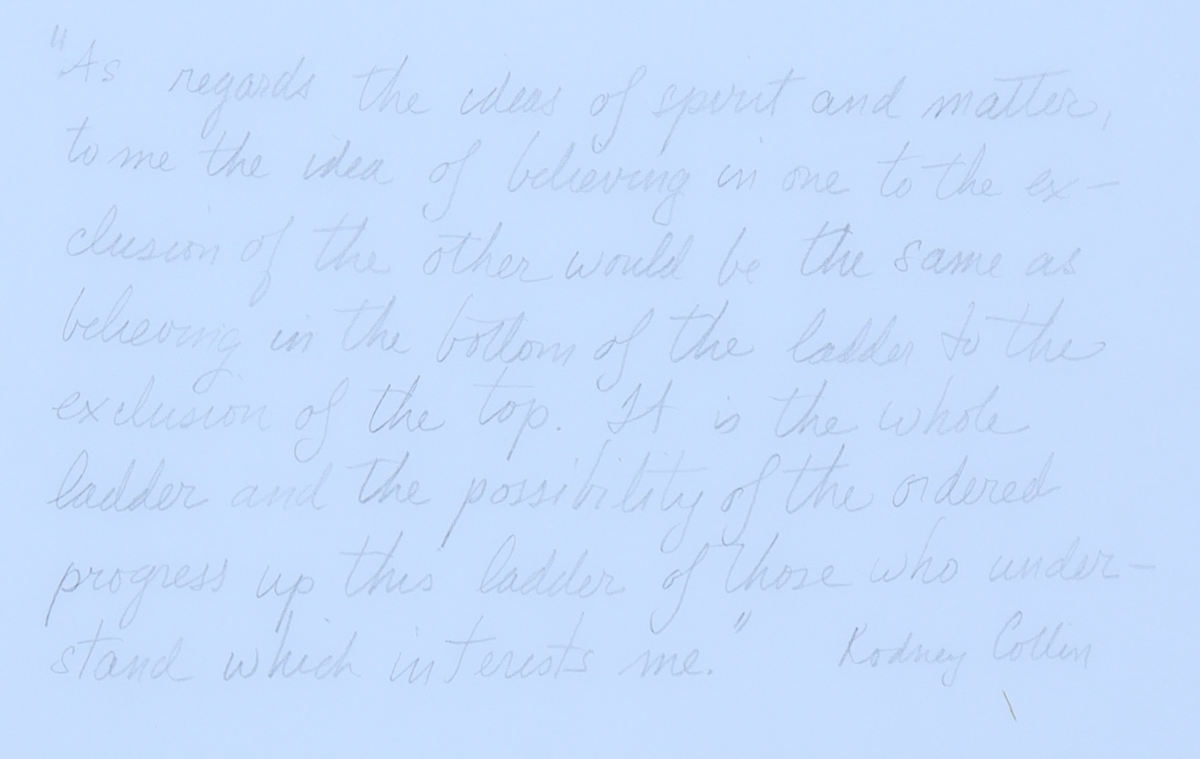 "As regards the ideas of spirit and matter,
to me the idea of believing in one to the ex-
clusion of the other would be the same as
believing in the bottom of the ladder to the
exclusion of the top. It is the whole
ladder and the possibility of the ordered
progress up this ladder of those who under-
stand which interests me." Rodney Collin